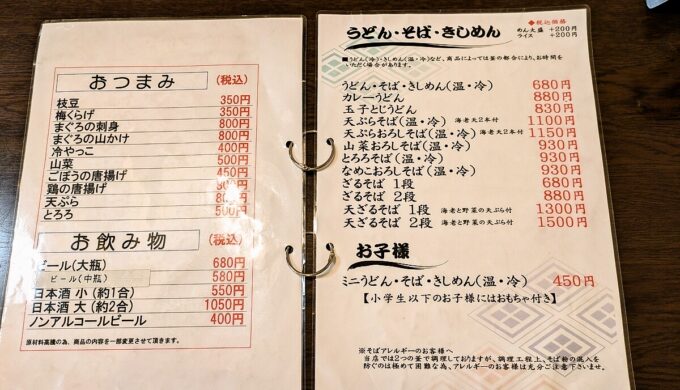 おつまみ (税込)
枝豆 350円
梅くらげ 350円
まぐろの刺身 800円
まぐろの山かけ 800円
冷やっこ 400円
山菜 500円
ごぼうの唐揚げ 450円
鶏の唐揚げ
天ぷら
とろろ 500円
お飲み物 (税込)
ビール(大瓶) 680円
ビール(中瓶) 580円
日本酒 小 (約1合) 550円
日本酒 大 (約2合) 1050円
ノンアルコールビール 400円
原材料高騰の為、商品の内容を一部変更させて頂きます。
うどん・そば・きしめん
◆税込価格
めん大盛 +200円
ライス +200円
■うどん(冷)・きしめん(温・冷)など、商品によっては釜の都合により、お時間を
いただく場合があります。
うどん・そば・きしめん(温・冷) 680円
カレーうどん 880円
玉子とじうどん 830円
天ぷらそば(温・冷) 海老天2本付 1100円
天ぷらおろしそば(温・冷) 海老天2本付 1150円
山菜おろしそば(温・冷) 930円
とろろそば(温・冷) 930円
なめこおろしそば(温・冷) 930円
ざるそば 1段 680円
ざるそば 2段 880円
天ざるそば 1段 海老と野菜の天ぷら付 1300円
天ざるそば 2段 海老と野菜の天ぷら付 1500円
お子様
ミニうどん・そば・きしめん(温・冷) 450円
【小学生以下のお子様にはおもちゃ付き】
※そばアレルギーのお客様へ
当店では2つの釜で調理しておりますが、調理工程上、そば粉の混入を
防ぐのは極めて困難な為、アレルギーのお客様は充分ご注意下さいませ。